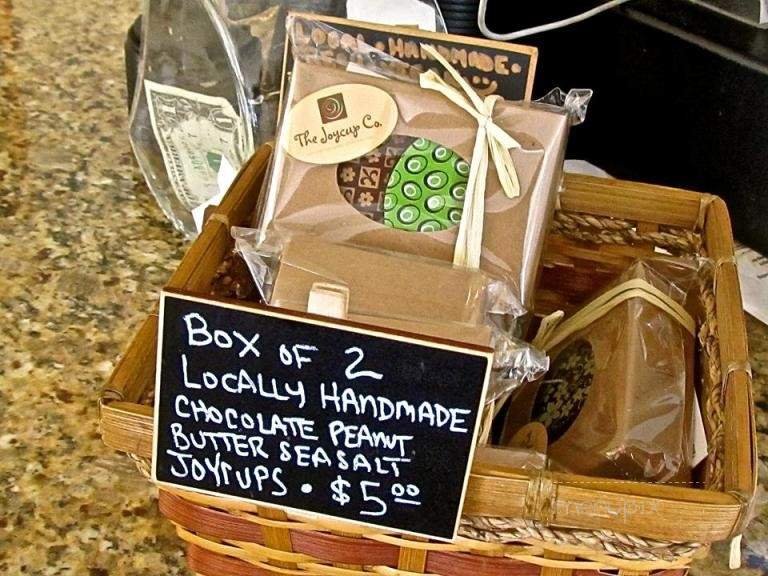 LOCAL • HANDMADE •
The Joycup Co.
BOX OF 2
LOCALLY HANDMADE
CHOCOLATE PEANUT
BUTTER SEASALT
JOYCUPS • $5.00